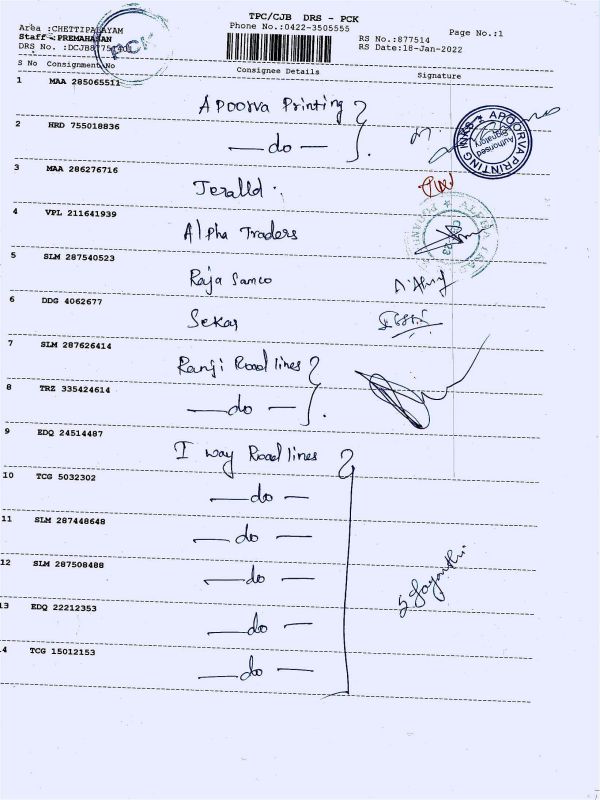 TPC/CJB DRS - PCK
Phone No.:0422-3505555
Page No.:1
Area :CHETTIPALAYAM
Staff :PREMAHASAN
DRS No. :DCJB877514
RS No.:877514
RS Date:18-Jan-2022
PCK
S No Consignment No Consignee Details Signature
1 MAA 285065511 Apoorva Printing
2 HRD 755018836 —do—
APOORVA PRINTING INKS
Authorised Signatory
3 MAA 286276716 Jeralld.
4 VPL 211641939 Alpha Traders
5 SLM 287540523 Raja Samco
6 DDG 4062677 Sekar
7 SLM 287626414 Ranji Roadlines
8 TRZ 335424614 —do—
9 EDQ 24514487 I way Roadlines
10 TCG 5032302 —do—
11 SLM 287448648 —do—
12 SLM 287508488 —do—
13 EDQ 22212353 —do—
14 TCG 15012153 —do—